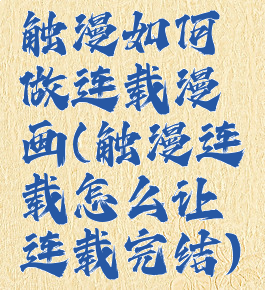 触漫如何
做连载漫
画(触漫连
载怎么让
连载完结)